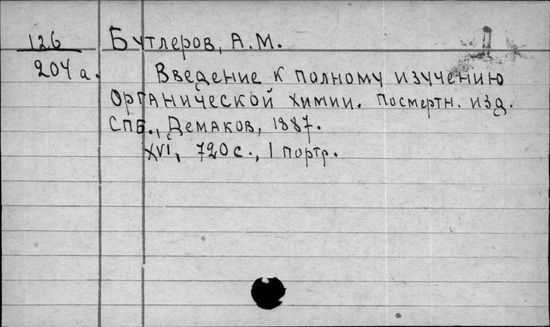 126 Бутлеров, А.М.
204 а. Введение к полному изучению
органической химии. Посмертн. изд.
СПБ., Демаков, 1887.
XVI, 720 с., 1 портр.